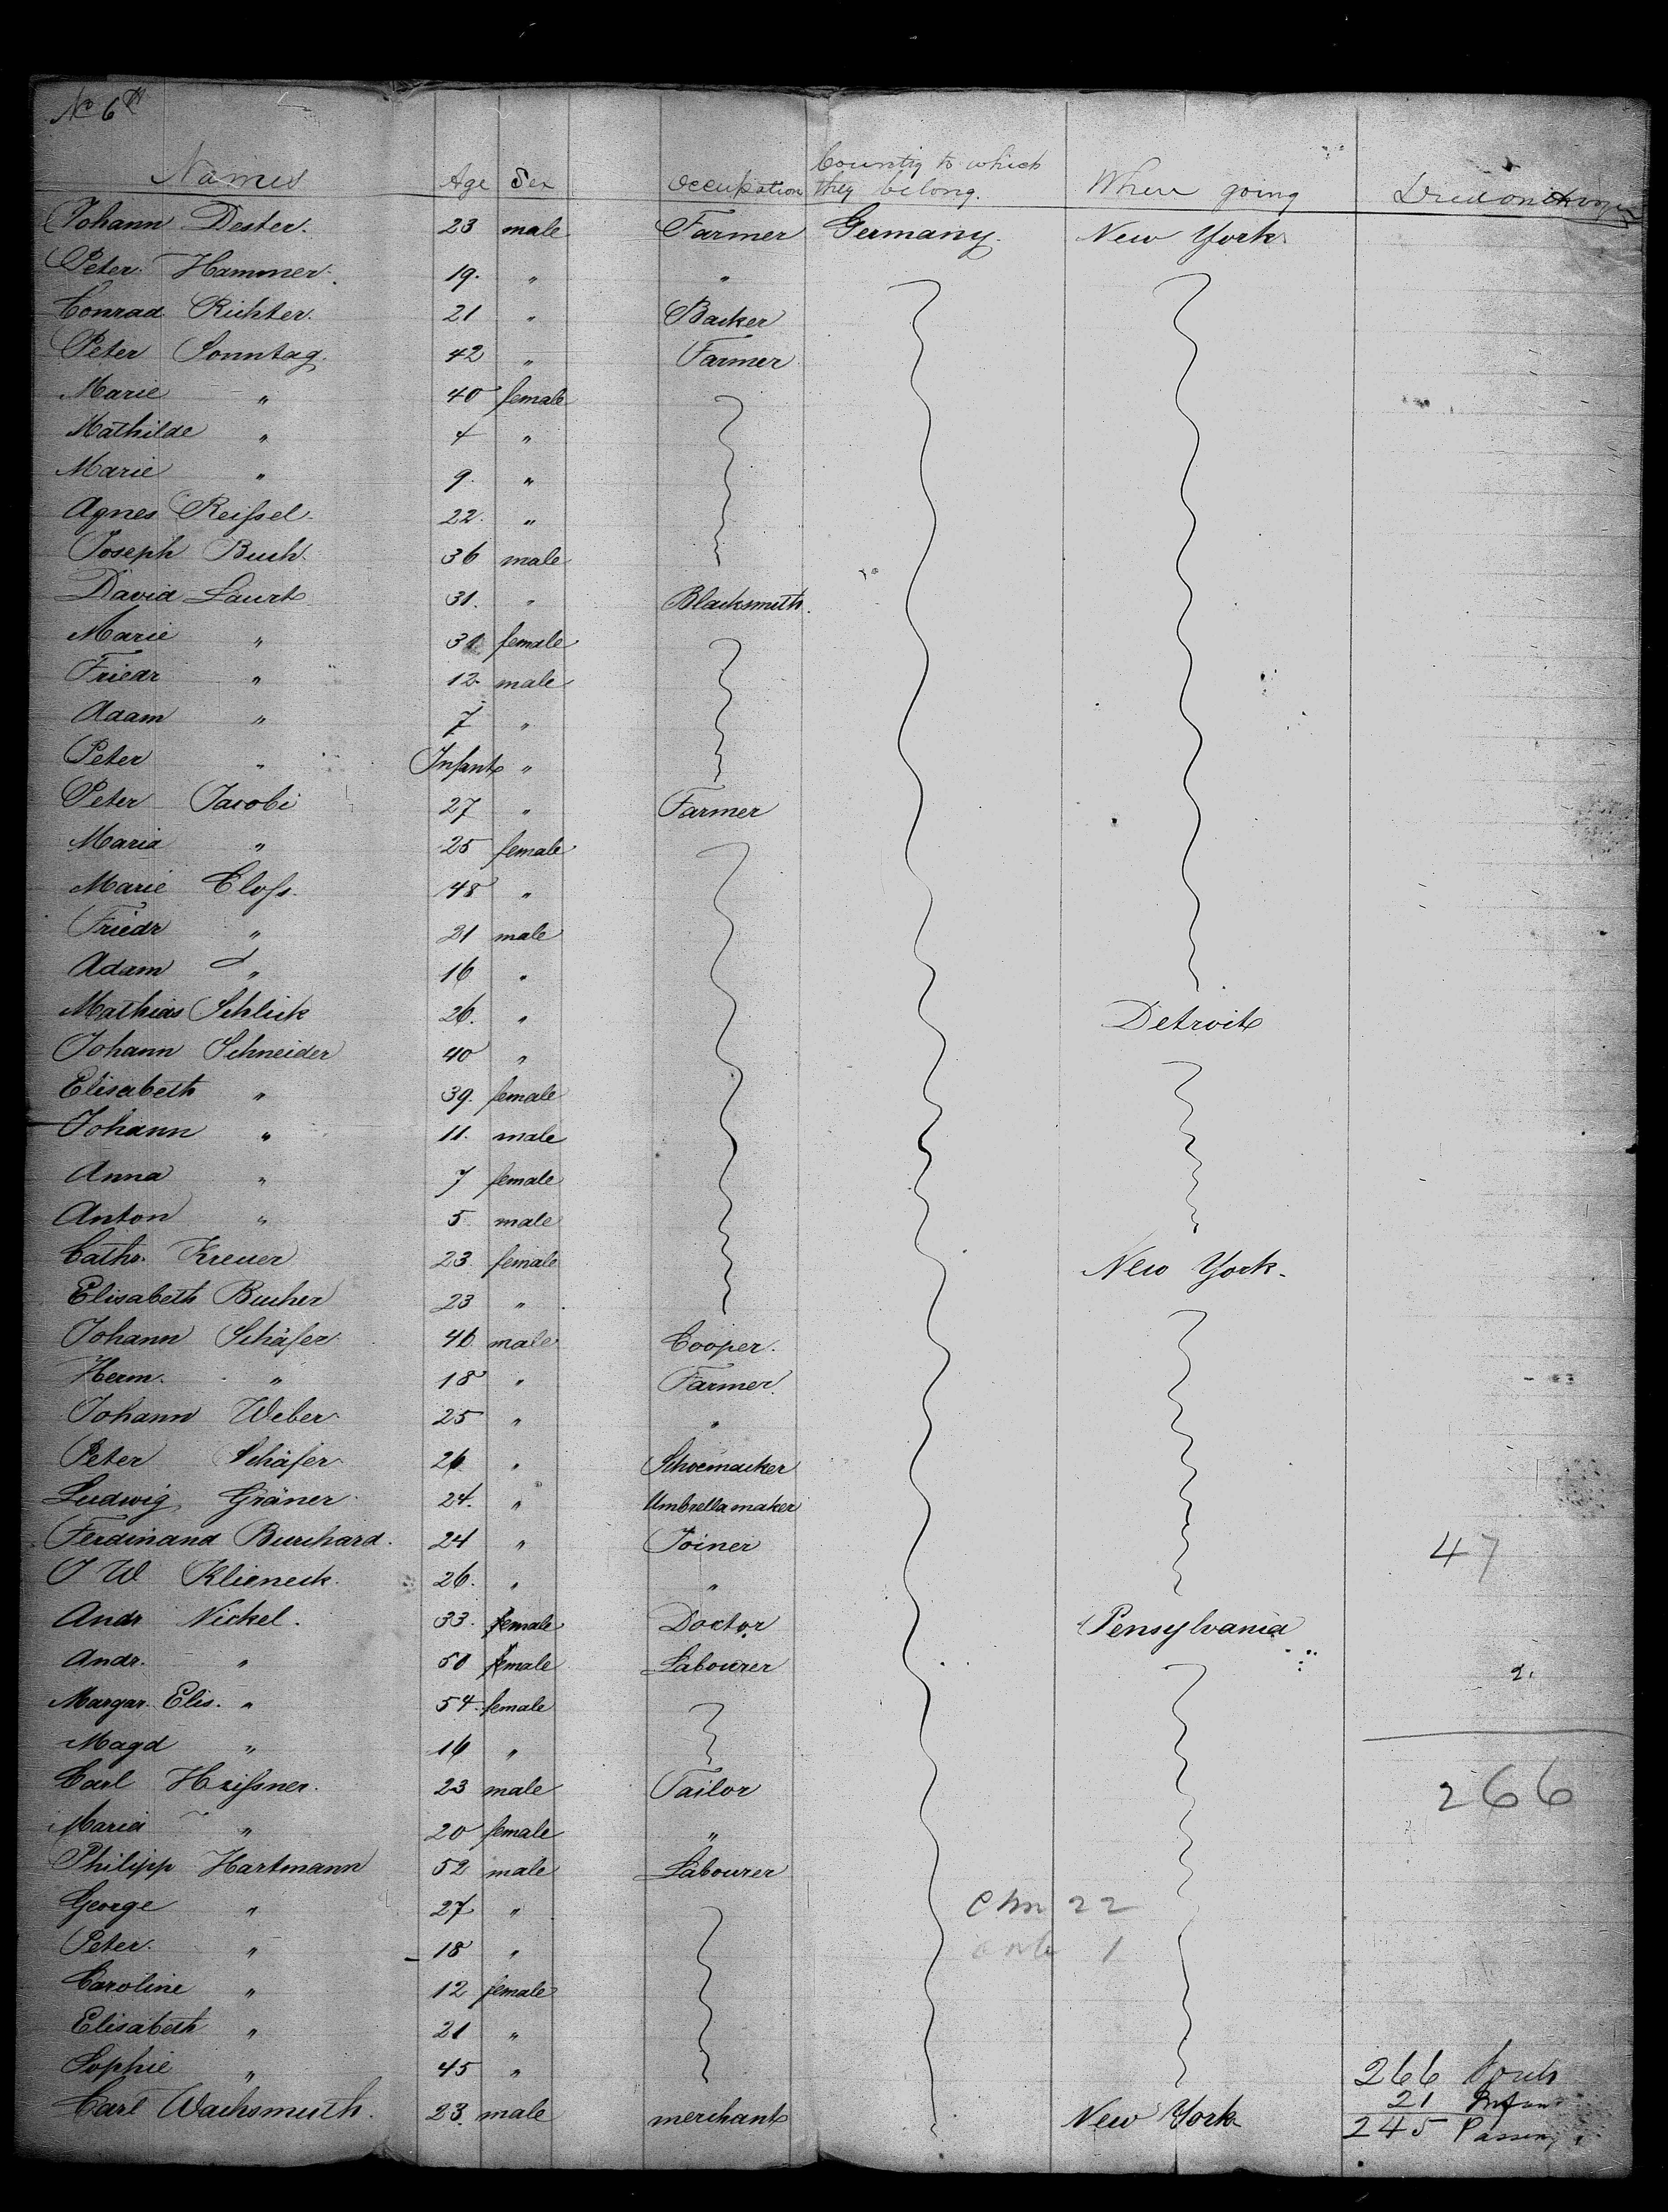 No 6th
Names Age Sex Occupation Country to which they belong. Where going Died on the voyage
Johann Dester. 23 male Farmer Germany. New York
Peter Hammer. 19. " "
Conrad Richter. 21 " Backer
Peter Sonntag. 42 " Farmer
Marie " 40 female
Mathilde " 4 "
Marie " 9. "
Agnes Reißel. 22. "
Joseph Buch. 36 male
David Laurt 31. " Blacksmith.
Marie " 31 female
Friedr " 12. male
Adam " 7 "
Peter " Infant "
Peter Jacobi 27 " Farmer
Maria " 25 female
Marie Cloß. 48 "
Friedr " 21 male
Adam " 16 "
Mathias Schlick 26. " Detroit
Johann Schneider 40 "
Elisabeth " 39. female
Johann " 11. male
Anna " 7 female
Anton " 5 male
Cathr. Kreuer 23. female New York.
Elisabeth Bucher 23 "
Johann Schäfer 46 male Cooper.
Herm. " 18 " Farmer.
Johann Weber 25 " "
Peter Schäfer 26 " Schoemacker
Ludwig Gräner 24. " Umbrella maker
Ferdinand Burchard. 24 " Joiner 47
J W Klieneck. 26. " "
Andr Nickel. 33. female Doctor Pensylvania
Andr. " 50 female Labourer 2.
Margar. Elis. " 54. female
Magd " 16 "
Carl Heißner. 23 male Tailor 266
Maria " 20 female "
Philipp Hartmann 52 male Labourer
George " 27 " Chn 22
Peter. " 18 " 1
Caroline " 12 female
Elisabeth " 21 "
Sophie " 45 " 266 Souls
21 Infan
Carl Wachsmuth. 23. male merchant New York 245 Passeng